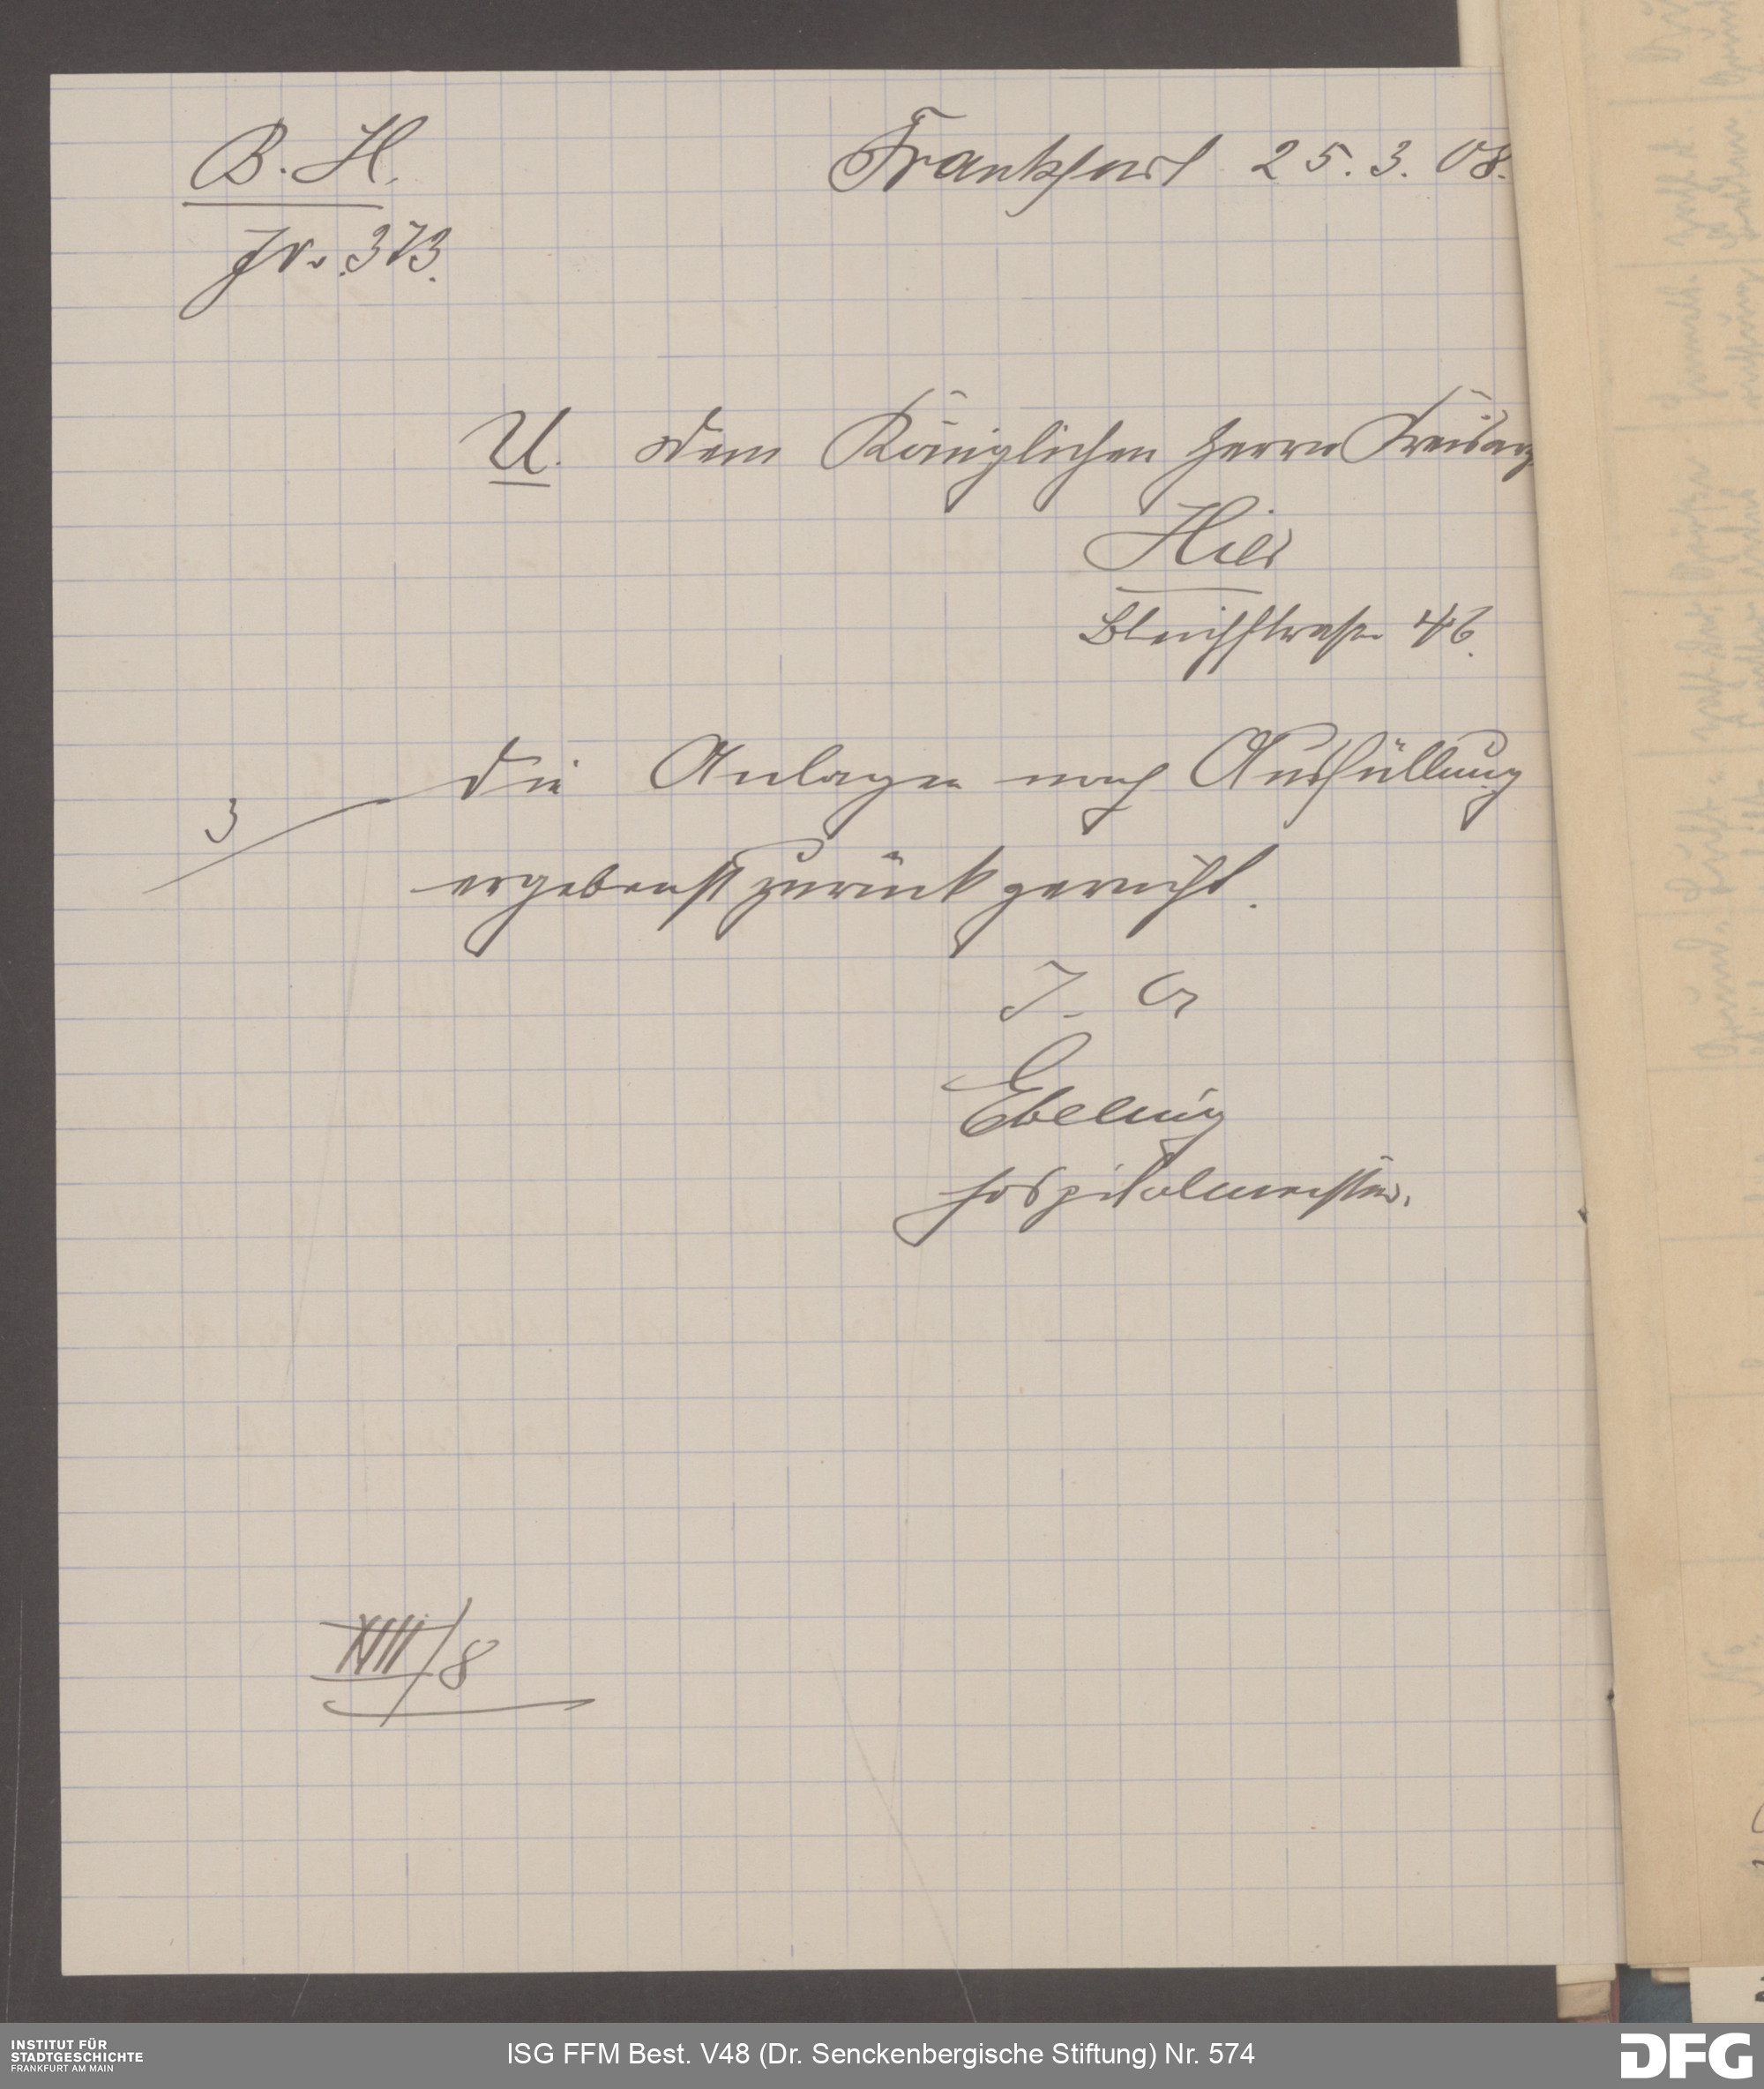 B. H.
Frankfurt 25. 3. 08.
Jr. 373.
U. dem Königlichen Herrn Kreisarz
Hier
Bleichstraße 46.
3
die Anlagen nach Ausfüllung
ergebenst zurückgereicht.
J. A.
Ebeling
Hospitalmeister.
XIII/8
INSTITUT FÜR
STADTGESCHICHTE
FRANKFURT AM MAIN
ISG FFM Best. V48 (Dr. Senckenbergische Stiftung) Nr. 574
DFG